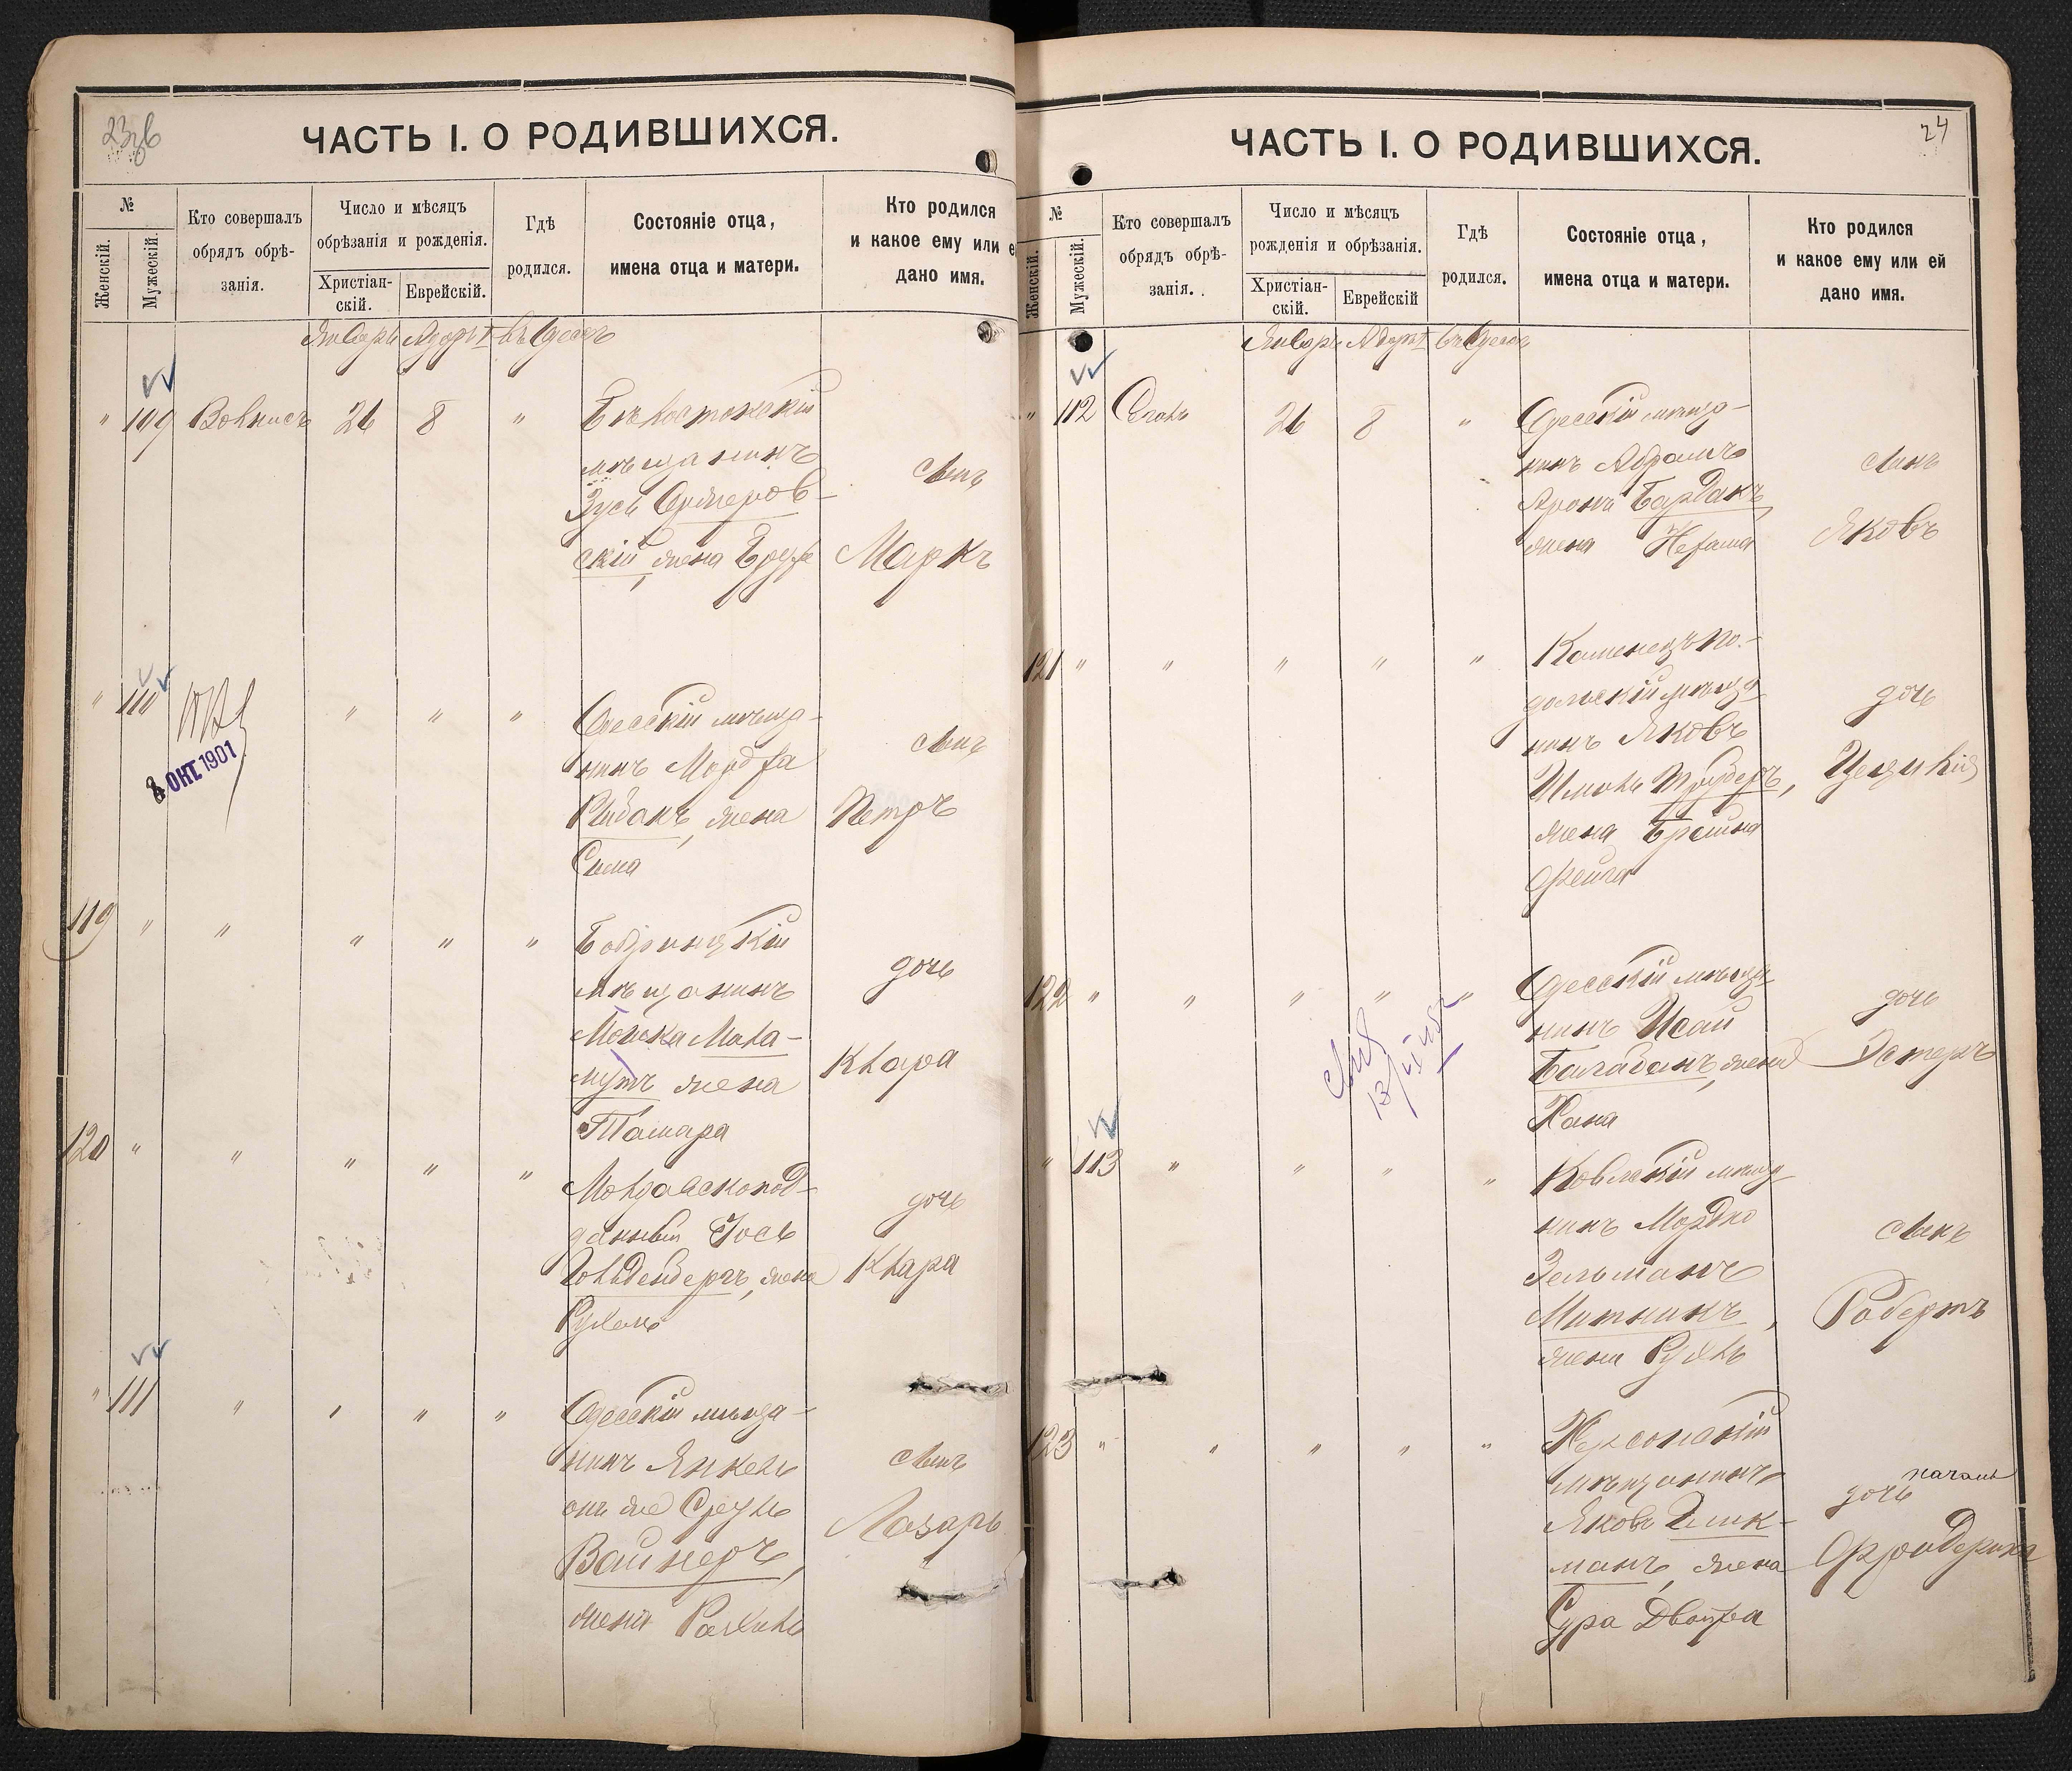 ЧАСТЬ I. О РОДИВШИХСЯ.
№
Женскій.
Мужескій.
Кто совершалъ
обрядъ обрѣ-
занія.
Число и мѣсяцъ
обрѣзанія и рожденія.
Христіан-
скій.
Еврейскій.
Гдѣ
родился.
Состояніе отца,
имена отца и матери.
Кто родился
и какое ему или е
дано имя.
Январь Адаръ I въ Одессѣ
" 109 26 8 "
Бѣлостокскій
мѣщанинъ
Зусь
скій, жена
сынъ
Маркъ
" 110 " " "
8 ОКТ 1901
Одесскій мѣща-
нинъ Мордха
жена
Сима
сынъ
Петръ
119 " " " " "
Бобринецкій
мѣщанинъ
Мошка Мала-
мутъ жена
Тамара
дочь
Клара
120 " " " " "
Молдавскопод-
данный Іось
Гольденбергъ, жена
Рухель
дочь
Клара
" 111 " " " "
Одесскій мѣща-
нинъ Янкель
онъ же Сруль
Вайнеръ,
жена Рахиль
сынъ
Лазарь
24
ЧАСТЬ I. О РОДИВШИХСЯ.
№
Женскій.
Мужескій.
Кто совершалъ
обрядъ обрѣ-
занія.
Число и мѣсяцъ
рожденія и обрѣзанія.
Христіан-
скій.
Еврейскій
Гдѣ
родился.
Состояніе отца,
имена отца и матери.
Кто родился
и какое ему или ей
дано имя.
Январь Адаръ I въ Одессѣ
" 112 26 8 "
Одесскій мѣща-
нинъ Абрамъ
Аронъ Бардакъ,
жена Нехама
сынъ
Яковъ
121 " " " " "
Каменецъ По-
дольскій мѣща
нинъ Яковъ
жена
Фейга
дочь
Цецилія
122 " " " " "
Одесскій мѣща
нинъ Исай
Балабанъ, жена
Хана
дочь
Эстеръ
" 113 " " " "
Ковельскій мѣща
нинъ Мордко
Зельманъ
Митникъ,
жена Рухль
сынъ
Робертъ
123 " " " " "
Херсонскій
мѣщанинъ
Яковъ
манъ, жена
Сура Двойра
дочь